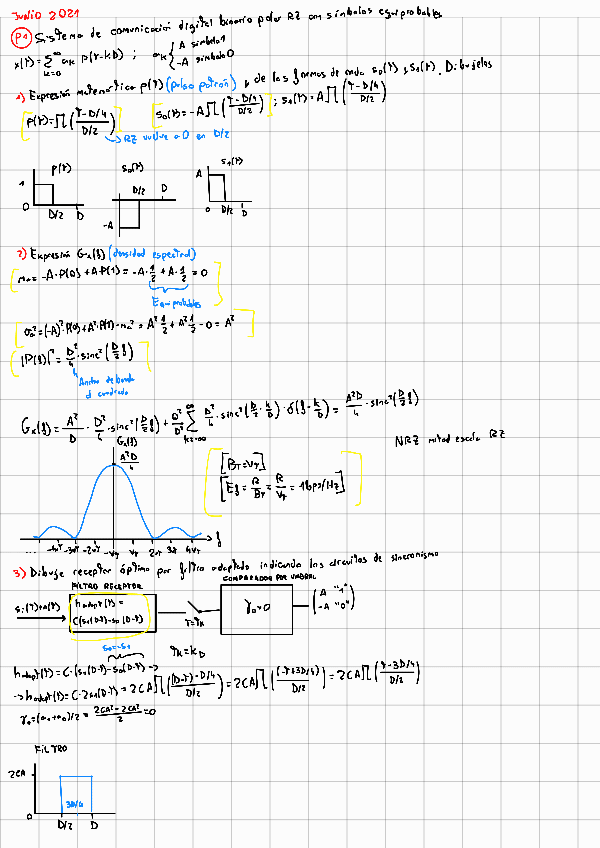 Junio 2021
P1 Sistema de comunicación digital binario polar RZ con símbolos equiprobables
x(t)=∑_{k=0}^{∞} a_k p(t-kD) ; a_k { A símbolo 1
-A símbolo 0
1) Expresión matemática p(t) (pulso patrón) y de las formas de onda s₀(t) y s₁(t). Dibujelas
[p(t)=∏((t-D/4)/(D/2))] [s₀(t)=-A∏((t-D/4)/(D/2))] ; s₁(t)=A∏((t-D/4)/(D/2))
→ RZ vuelve a 0 en D/2
p(t) s₀(t) s₁(t)
1 0 D/2 D
-A D/2 D
A 0 D/2 D
2) Expresión Gx(f) (densidad espectral)
[ma=-A·P(0)+A·P(1)=-A·1/2+A·1/2=0]
Equiprobables
[σa²=(-A)²·P(0)+A²·P(1)-ma²=A²1/2+A²1/2-0=A²]
|P(f)|²=D²/4·sinc²(D/2 f)
Ancho de banda
al cuadrado
Gx(f)=A²/D·D²/4·sinc²(D/2 f)+0²/D²∑_{k=-∞}^{∞} D²/4·sinc²(D/2·k/D)·δ(f-k/D)=A²D/4·sinc²(D/2 f)
NRZ mitad escala RZ
Gx(f)
A²D/4
[BT=VT]
[Ef=R/BT=R/VT=1bps/Hz]
-4VT -3VT -2VT -VT VT 2VT 3VT 4VT f
3) Dibuje receptor óptimo por filtro adaptado indicando los circuitos de sincronismo
FILTRO RECEPTOR COMPARADOR POR UMBRAL
si(t)+n(t) hadapt(t)=
C(s₁(D-t)-s₀(D-t)) t=tk γ₀=0 { A "1"
-A "0"
s₀=-s₁ tk=kD
hadapt(t)=C·(s₁(D-t)-s₀(D-t)) →
→hadapt(t)=C·2s₁(D-t)=2CA∏(((D-t)-D/4)/(D/2))=2CA∏((-t+3D/4)/(D/2))=2CA∏((t-3D/4)/(D/2))
γ₀=(a₁+a₀)/2=(2CA²-2CA²)/2=0
FILTRO
2CA
3D/4
0 D/2 D